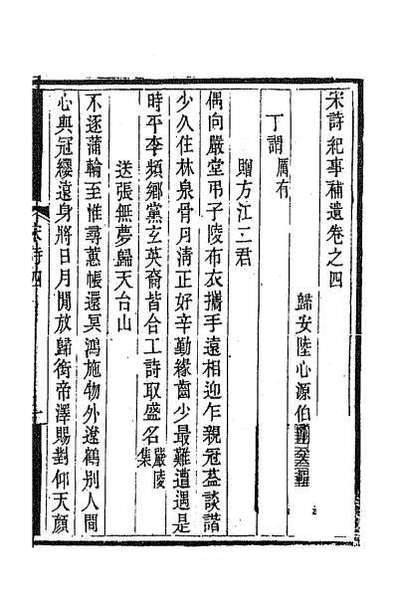 宋詩紀事補遺卷之四
歸安陸心源伯
丁謂厲有
贈方江二君
偶向嚴堂弔子陵布衣攜手遠相迎乍親冠葢談諧
少久住林泉骨月淸正好辛勤緣齒少最難遭遇是
時平李頻鄉黨玄英裔皆合工詩取盛名嚴陵集
送張無夢歸天台山
不逐蒲輪至惟尋蕙帳還冥鴻施物外遼鶴別人間
心與冠纓遠身將日月閒放歸銜帝澤賜對仰天顏